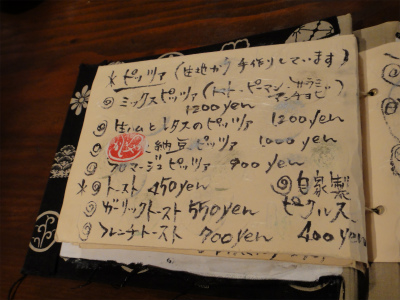 ※ピッツァ(生地から手作りしています)
◎ミックスピッツァ(トマト・ピーマン、サラミ、アンチョビ)
1200yen
◎生ハムとレタスのピッツァ 1200yen
納豆ピッツァ 1000yen
フロマージュピッツァ 900yen
※◎トースト 450yen
◎ガーリックトースト 550yen
◎フレンチトースト 700yen
◎自家製
ピクルス
400yen